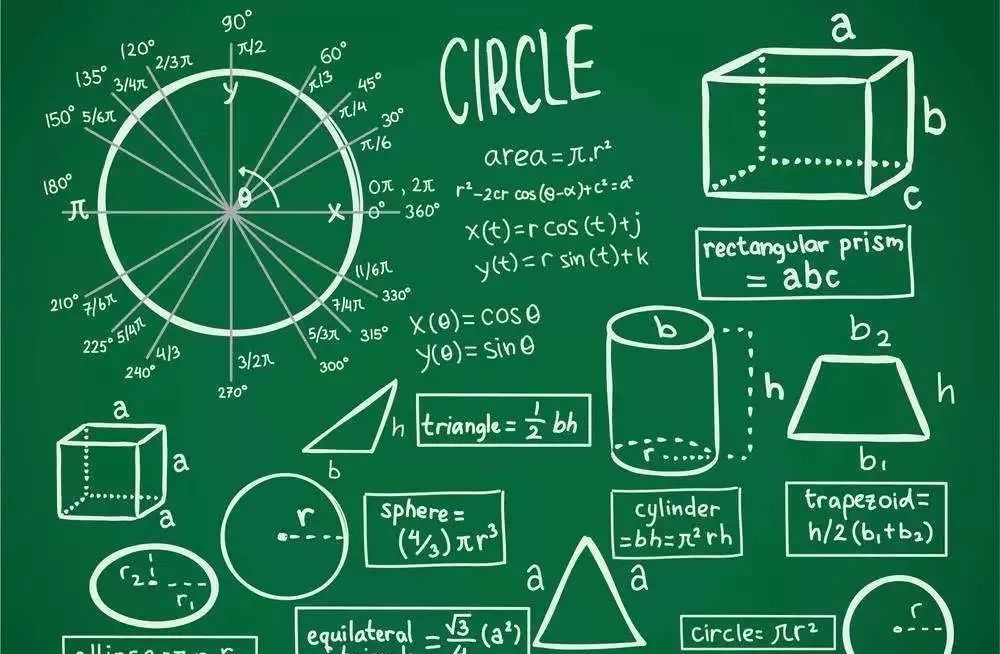 90°
π/2
120°
2/3π
60°
π/3
135°
3/4π
45°
π/4
150° 5/6π
30°
π/6
y
180°
π
θ
x
0π, 2π
0°
360°
210° 7/6π
11/6π
330°
225° 5/4π
7/4π
315°
240°
4/3
3/2π
270°
5/3π
300°
CIRCLE
area=π.r²
r²-2cr cos(θ-α)+c²=a²
x(t)=r cos(t)+j
y(t)=r sin(t)+k
x(θ)=cosθ
y(θ)=sinθ
a
b
c
rectangular prism
= abc
b
h
r
cylinder
=bh=π²rh
b₂
h
b₁
trapezoid=
h/2(b₁+b₂)
h
b
triangle= 1/2 bh
a
a
a
r
sphere=
(4/3)πr³
r₂
r₁
equilateral = √3/4 (a²)
a
a
circle= πr²
r